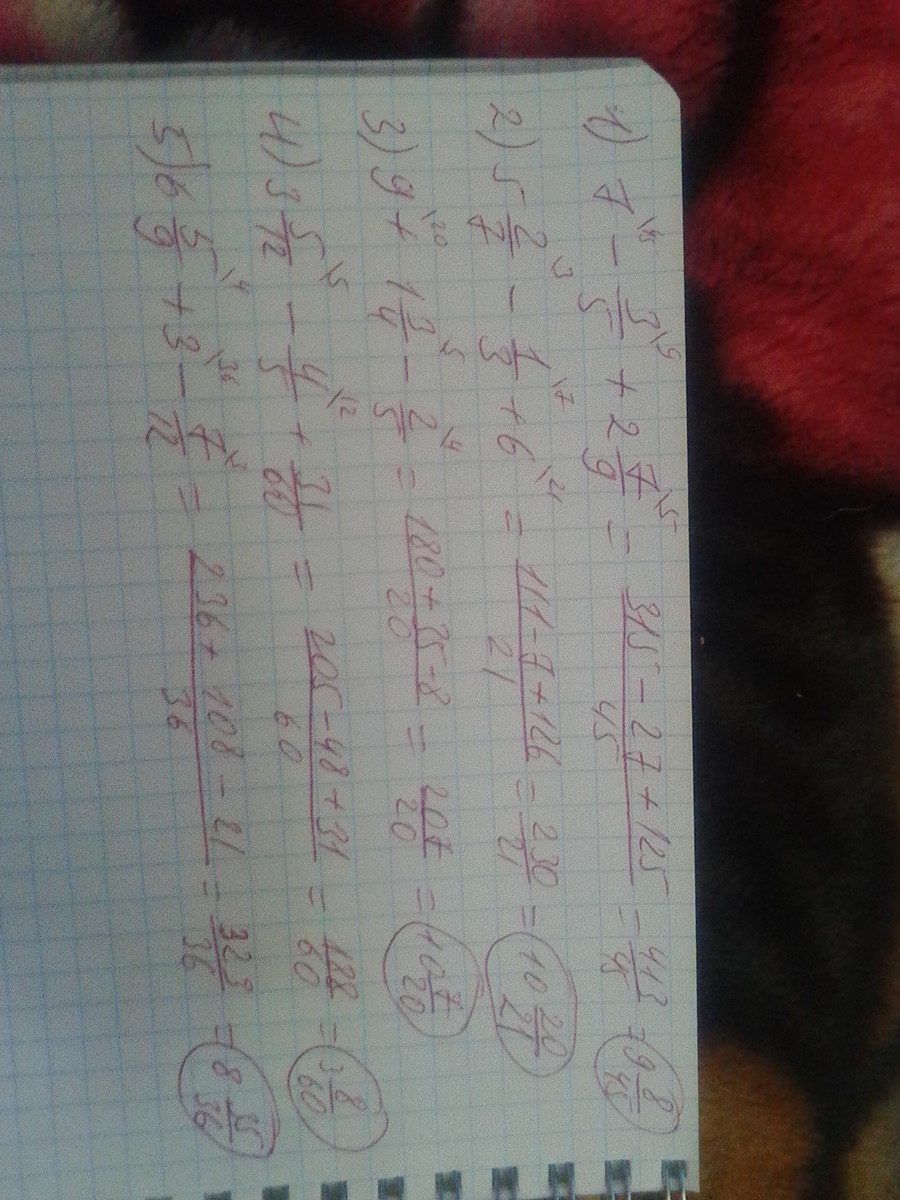 1) 7\45 - 3/5\9 + 2 7/9\5 = (315 - 27 + 125)/45 = 413/45 = 9 8/45
2) 5 2/7\3 - 1/3\7 + 6\21 = (111 - 7 + 126)/21 = 230/21 = 10 20/21
3) 9\20 + 1 3/4\5 - 2/5\4 = (180 + 35 - 8)/20 = 207/20 = 10 7/20
4) 3 5/12\5 - 4/5\12 + 31/60 = (205 - 48 + 31)/60 = 188/60 = 3 8/60
5) 6 5/9\4 + 3\36 - 7/12\3 = (236 + 108 - 21)/36 = 323/36 = 8 35/36